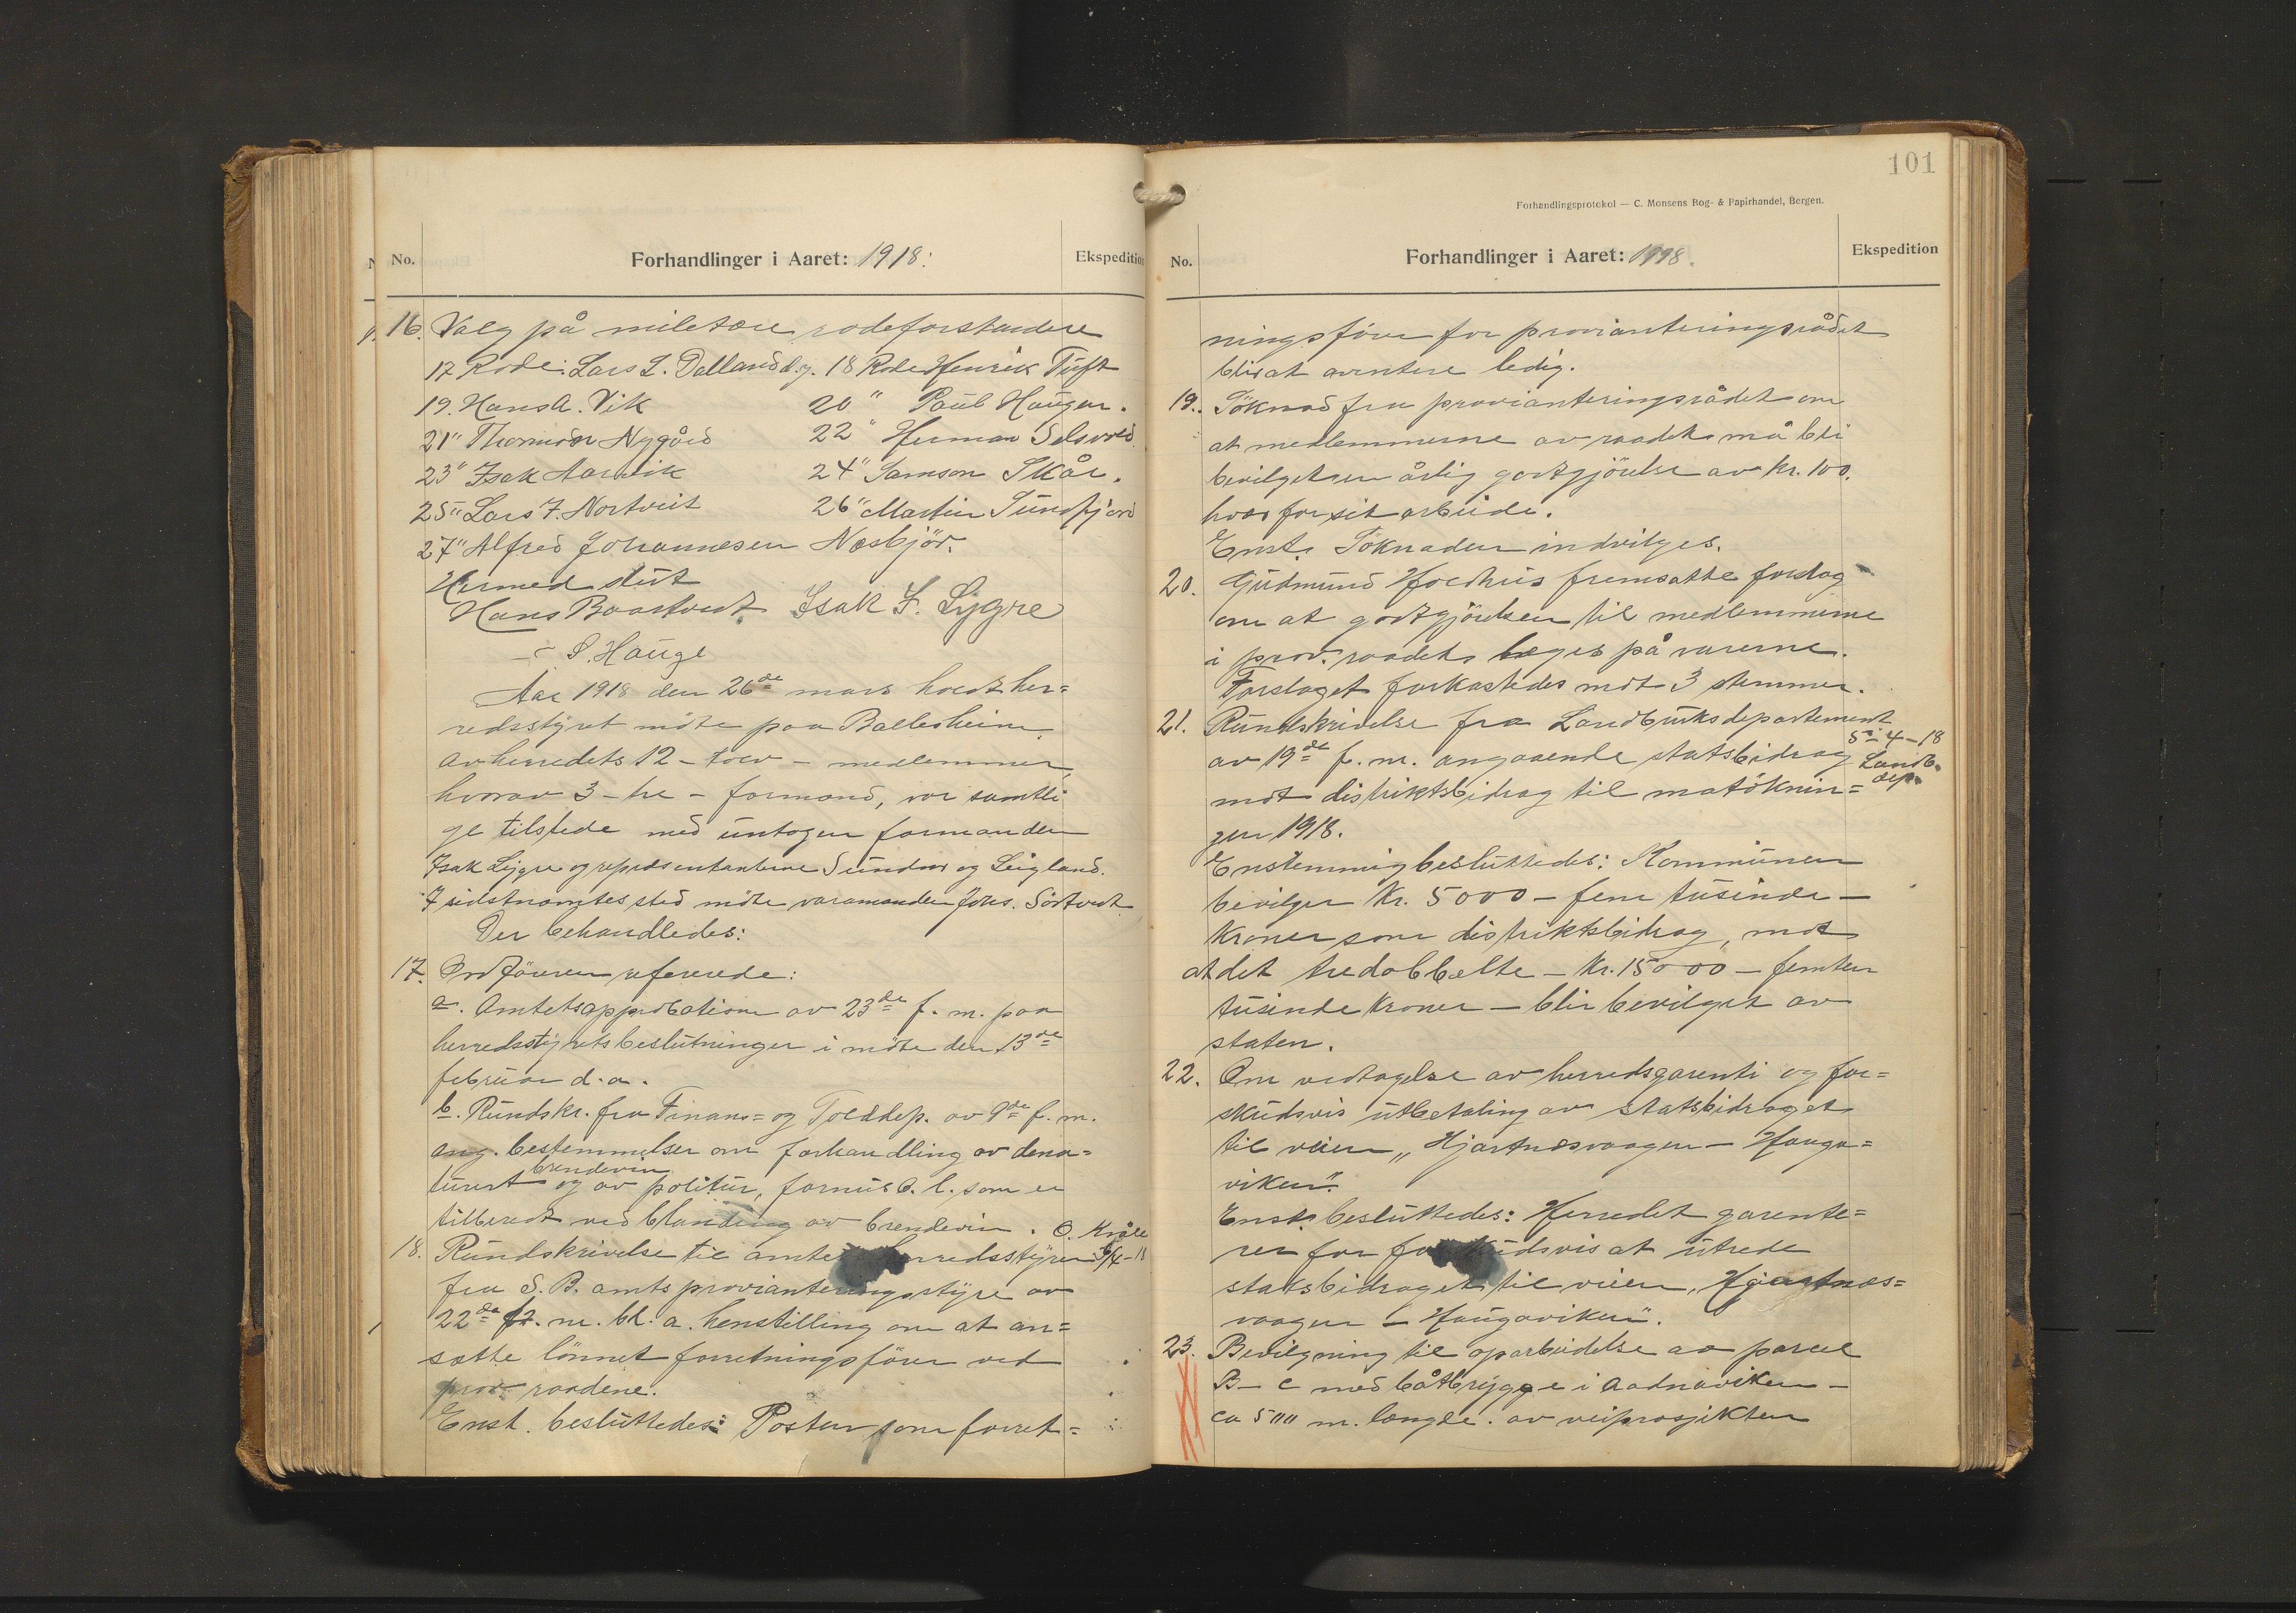 No.
Forhandlinger i Aaret: 1918.
Ekspedition
16. Valg på miletære rodeforstandere
17 Rode: Lars L. Dalland d.y. 18 Rode Henrik Tuft
19. Hans A. Vik 20 " Paul Haugen.
21 " Thomas Nygård 22 " Herman Selsvold
23 " Isak Aarvik 24 " Samson Skår.
25 " Lars J. Nortveit 26 " Martin Sundfjord
27 " Alfred Johannesen Næsbjør.
Hermed slut
Hans Baastvedt Isak F. Lygre
S. Hauge
Aar 1918 den 26de mars holdt her=
redsstyret møte paa Ballesheim.
Av herredets 12 - tolv - medlemmer,
hvorav 3 - tre - formænd, var samtli
ge tilstede med untagen formanden
Isak Lygre og repræsentanterne Sundnæs og Leigland.
I sidstnævntes sted møtte varamanden Johs. Sørtveit
Der behandledes:
17. Ordføreren refererede:
a. Amtets approbation av 23de f. m. paa
herredsstyrets beslutninger i møte den 13de
februar d. a.
b. Rundskr. fra Finans= og Tolddep. av 9de f. m.
ang. bestemmelser om forhandling av dena=
turert brendevin og av politur, fernis o. l. som er
tilberedt ved blanding av brendevin.
O. Kvåle
5/4-18
18. Rundskrivelse til amtets herredsstyrer
fra S. B. amts provianteringsstyre av
22de f. m. bl. a. henstilling om at an=
sætte lønnet forretningsfører ved
prov. raadene.
Enst. besluttedes: Posten som forret=
101
Forhandlingsprotokol — C. Monsens Bog- & Papirhandel, Bergen.
No.
Forhandlinger i Aaret: 1918.
Ekspedition
ningsfører for provianteringsrådet
blir at avertere ledig.
19. Søknad fra provianteringsrådet om
at medlemmerne av raadet må bli
bevilget en årlig godtgjørelse av kr. 100.
hver for sit arbeide.
Enst. Søknaden indvilges.
20. Gudmund Holdhus fremsatte forslag
om at godtgjørelsen til medlemmerne
i prov. raadet lægges på varerne.
Forslaget forkastedes mot 3 stemmer.
21. Rundskrivelse fra Landbruksdepartement
av 19de f. m. angaaende statsbidrag
5-4-18
Landb.
dep.
mot distriktsbidrag til matøknin=
gen 1918.
Enstemmig besluttedes: Kommunen
bevilger kr. 5000 - fem tusinde -
kroner som distriktsbidrag, mot
at det tredobbelte - kr. 15000 - femten
tusinde kroner - blir bevilget av
staten.
22. Om vedtagelse av herredsgaranti og for=
skudsvis utbetaling av statsbidraget
til veien „Hjartnesvaagen - Hauga=
viken".
Enst. besluttedes: Herredet garante=
rer for forskudsvis at utrede
statsbidraget til veien „Hjartnæs=
vaagen - Haugaviken".
23. Bevilgning til oparbeidelse av parcel
B - C med båtbrygge i Aadnaviken -
ca 500 m. længde. av veiprosjekten